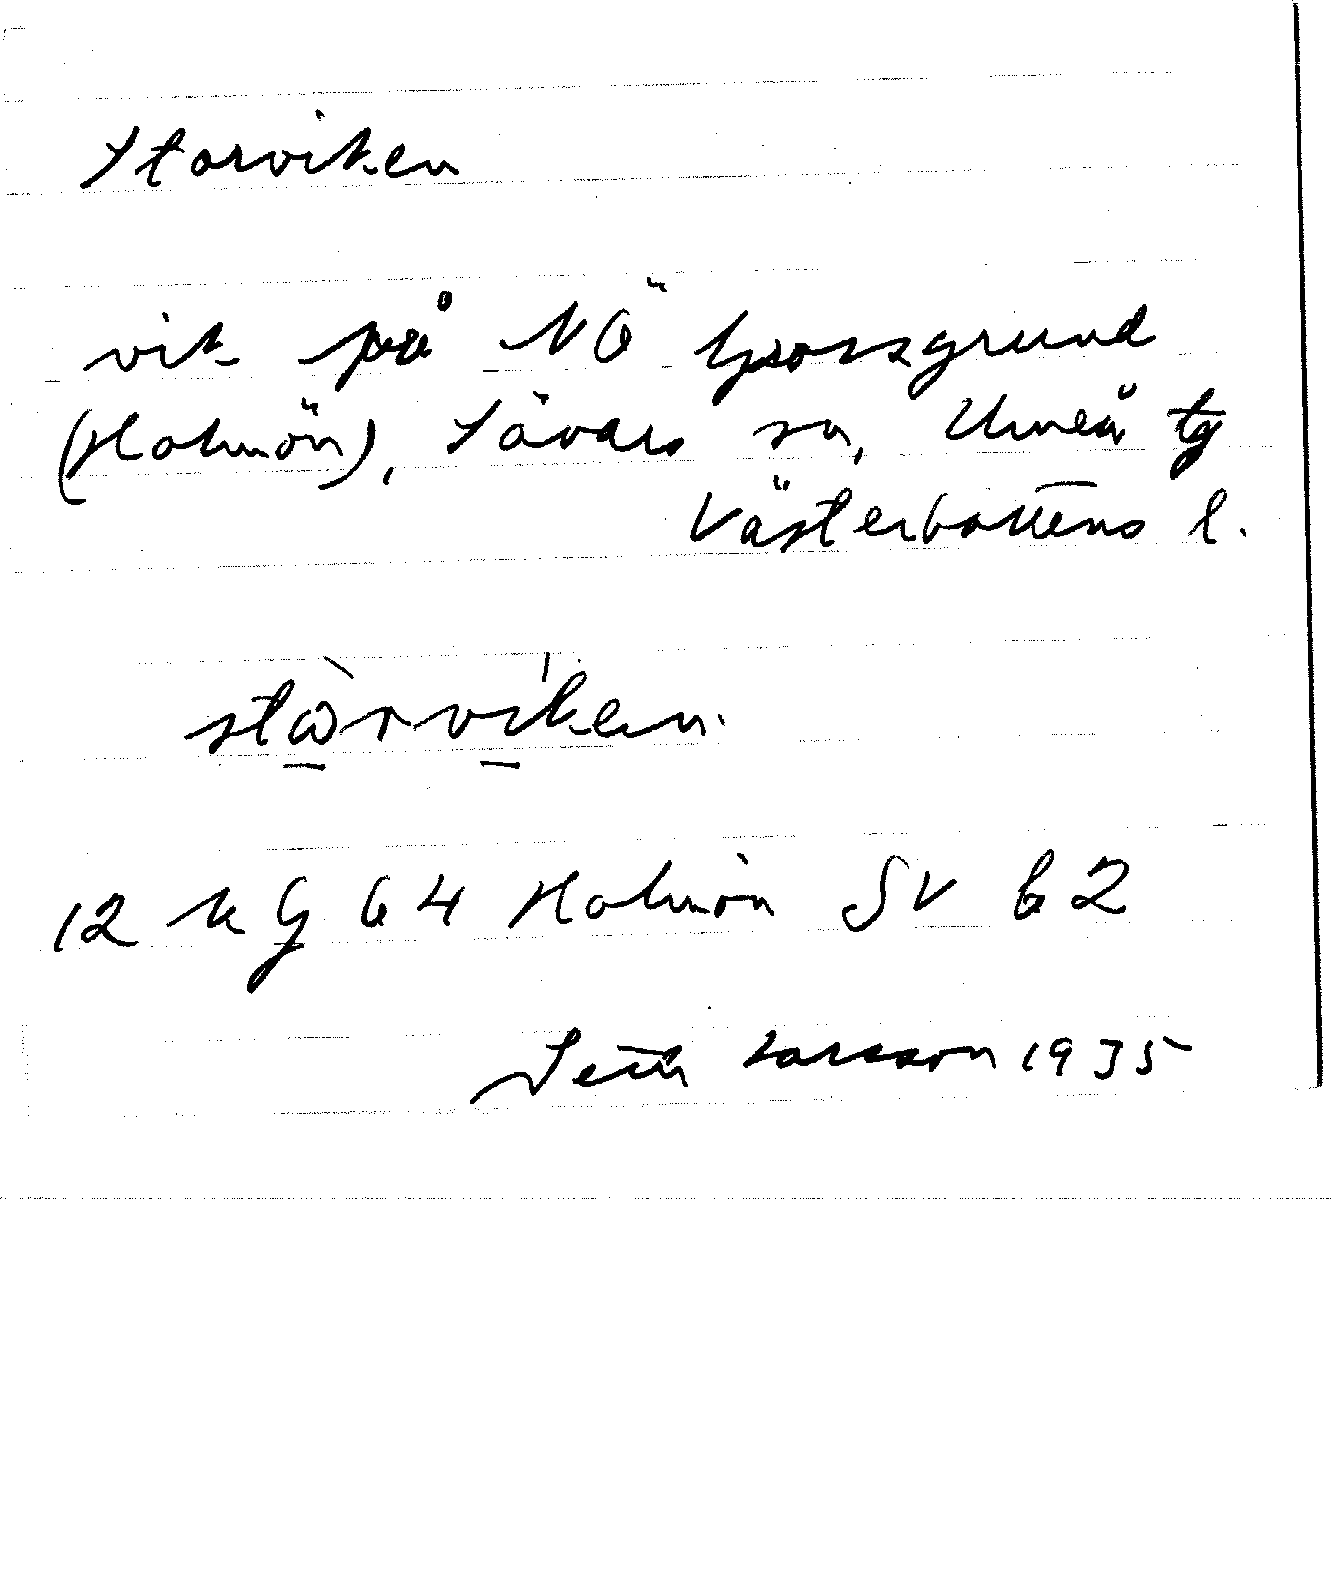 Storviken
vik på NÖ grossgrund
(Holmön), Sävars sn, Umeå tg
Västerbottens l.
12 k G 64 Holmön SV b2
Seth Larsson 1935